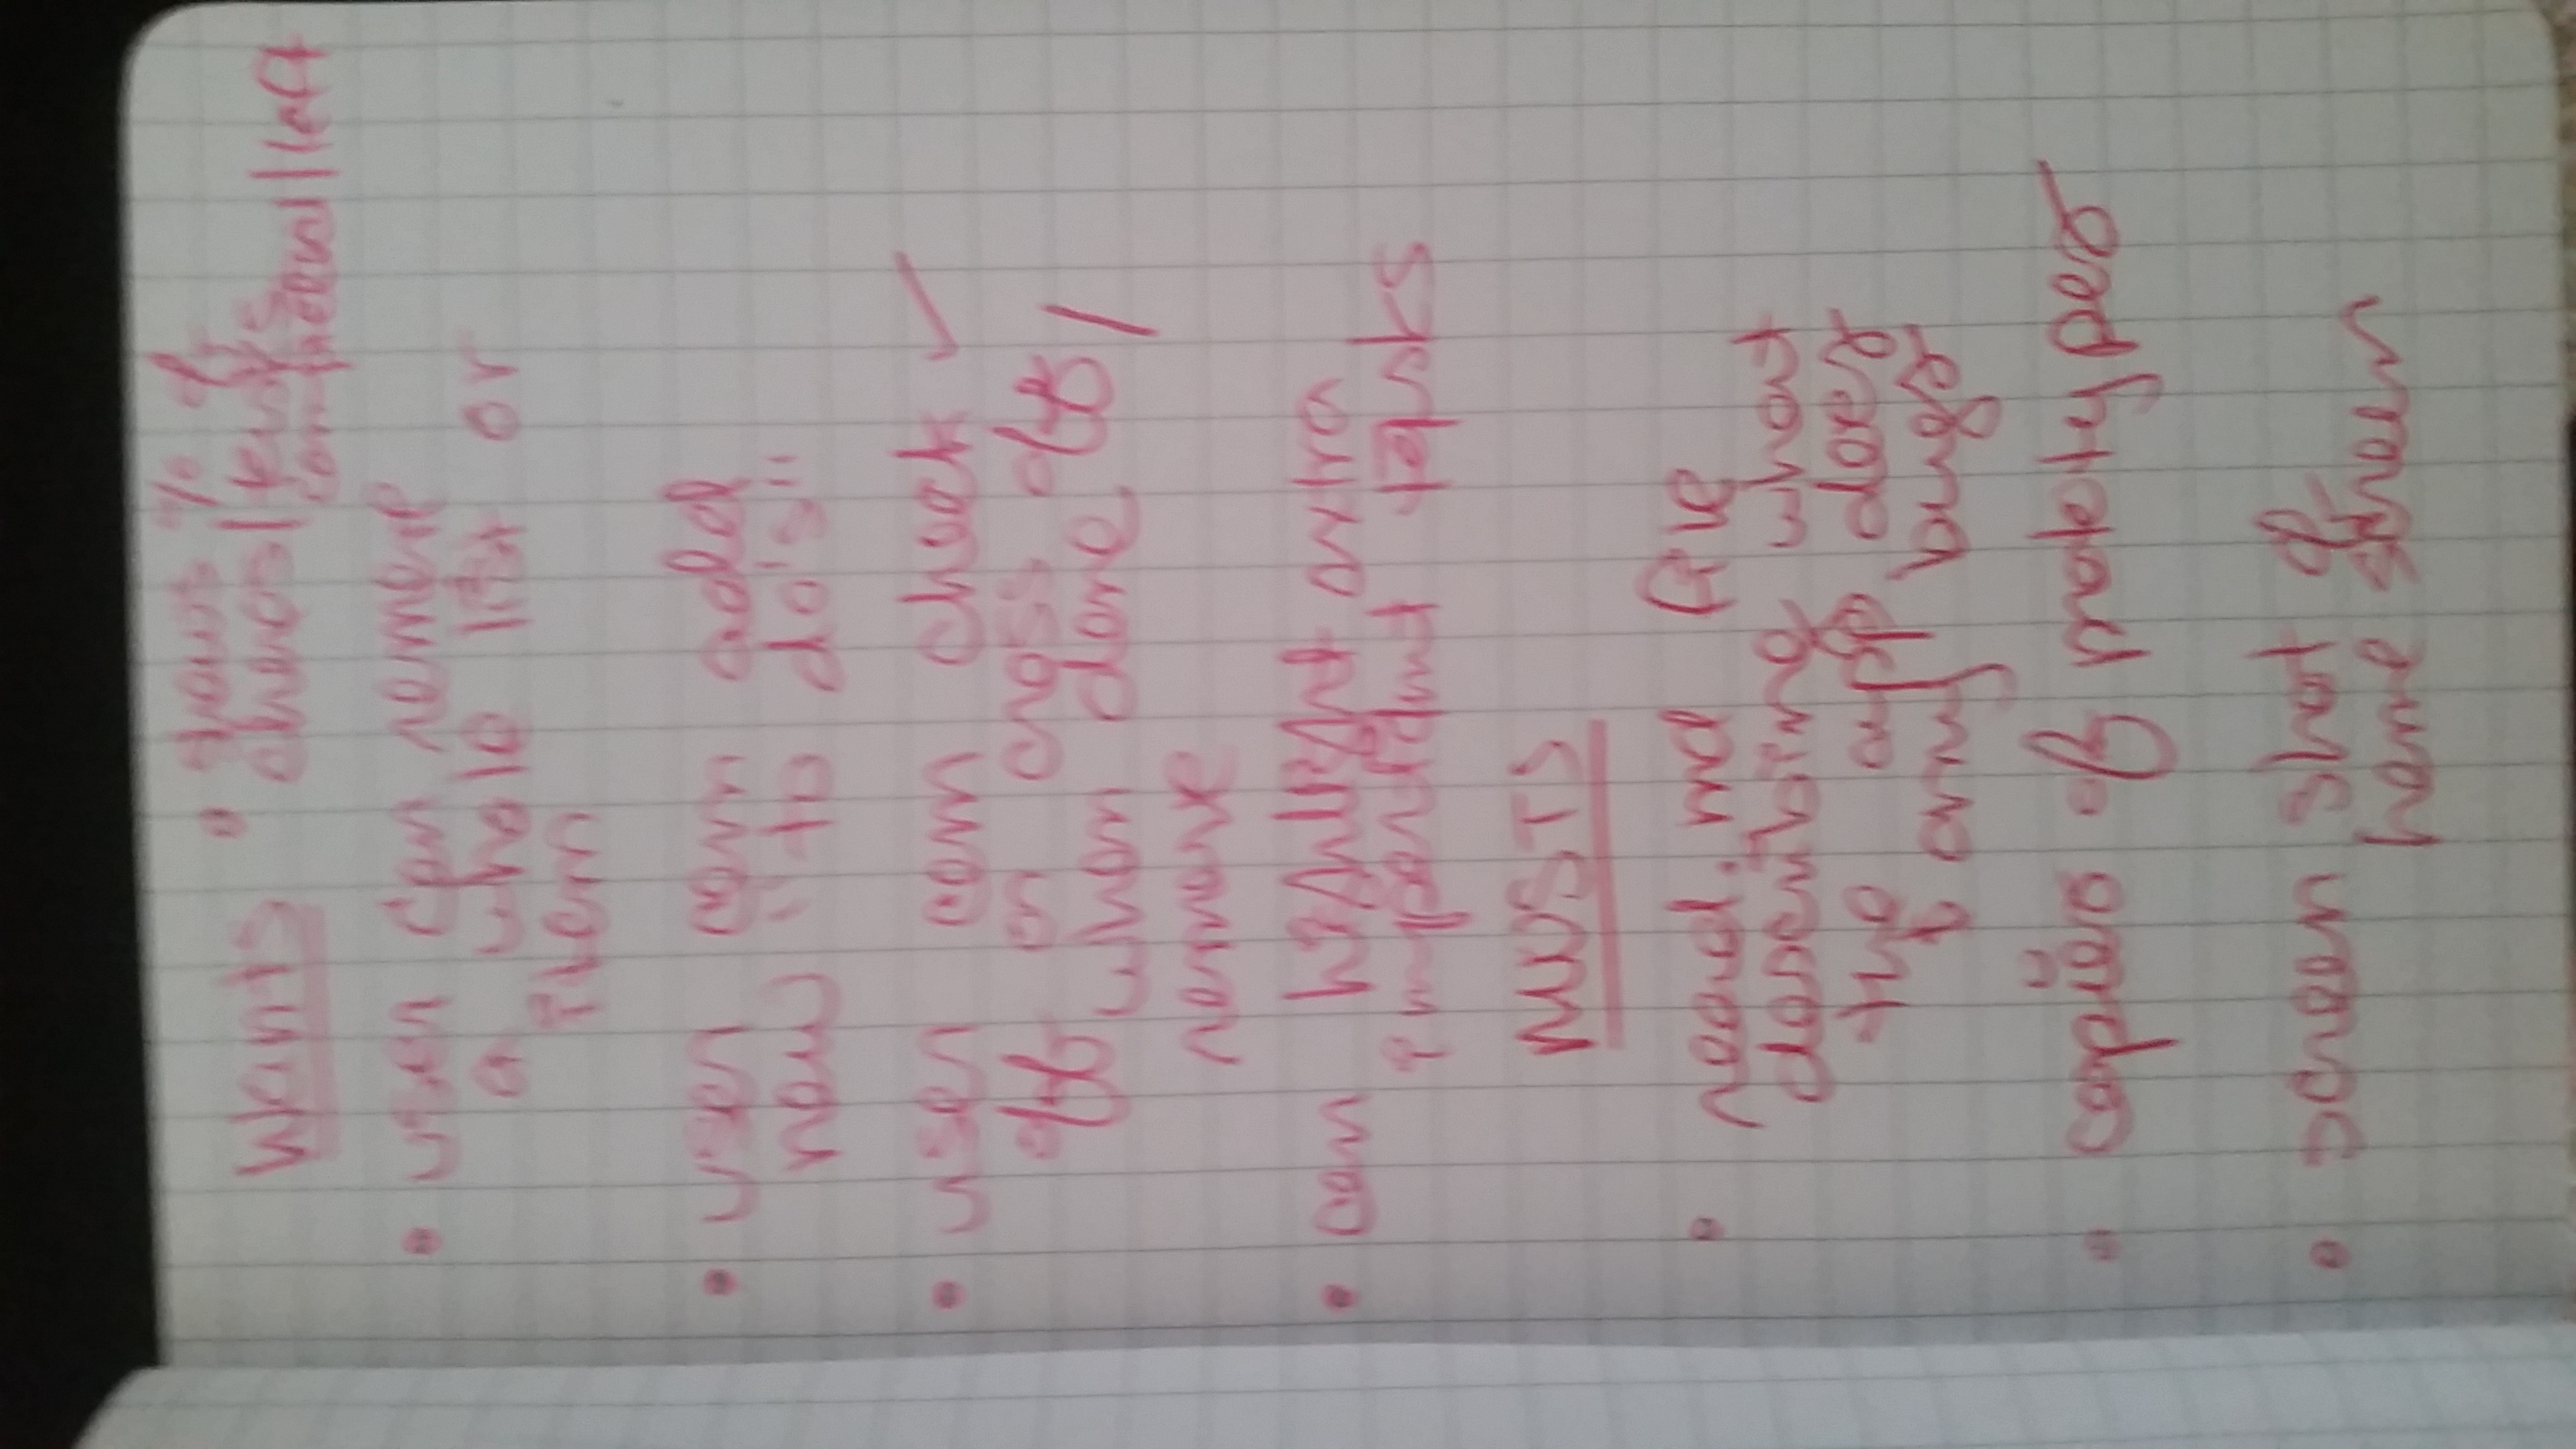 Wants
• shows % of
chores/tasks
completed/left
• user can remove
a whole list or
item
• user can add
new "to do's"
• user can check ✓
off or cross off,
when done /
remove
• can highlight extra
important tasks
MUSTS
• read.md file
describing what
the app does
& any bugs
• copies of prototypes
• screen shot of
home screen